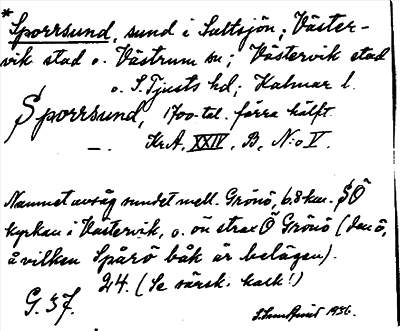 * Sporrsund, sund i Saltsjön; Väster-
vik stad o. Västrum sn; Västervik stad
o. S. Tjusts hd; Kalmar l.
Sporrsund, 1700-tal. förra hälft.
—. Kr.A. XXIV, B, N:o V.
Namnet avsåg sundet mell. Grönö, 6.8 km. SÖ
kyrkan i Västervik, o. ön strax Ö Grönö (den ö,
å vilken Spårö båk är belägen).
24. (Se särsk. kalk!)
G. 37.
1936.